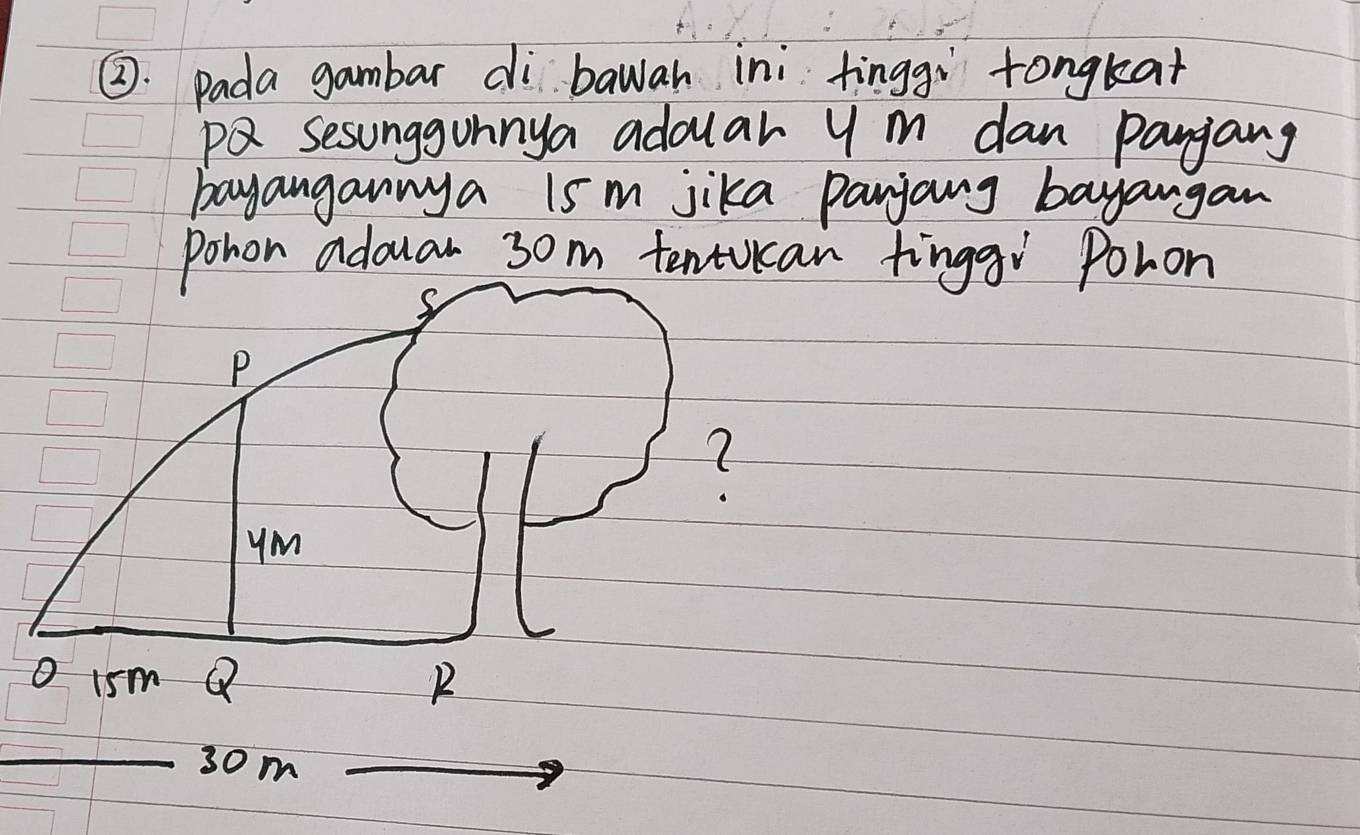 ②. pada gambar di bawah ini tinggi tongkat
PQ sesungguhnya adalah 4 m dan panjang
bayangannya 15 m jika panjang bayangan
pohon adalah 30 m tentukan tinggi Pohon
S
P
?
4m
O 15m Q R
30 m